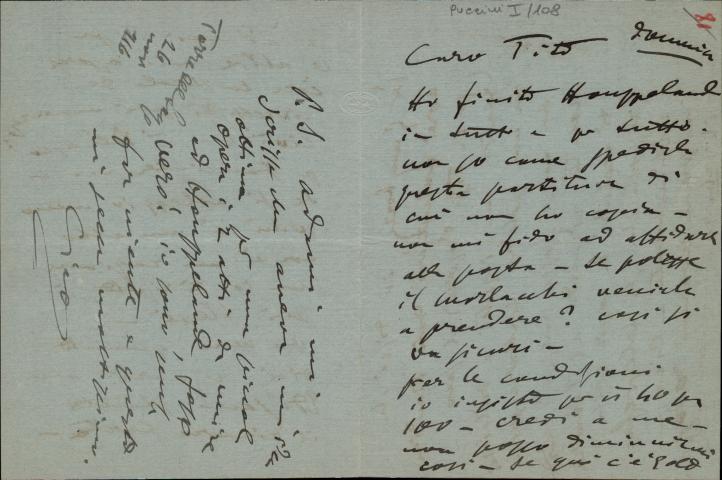 Puccini I/108
81
domenica
Caro Tito
Ho finito Houppelande
in tutto e per tutto.
non so come spedirle
questa partitura di
cui non ho copia -
non mi fido ad affidarla
alla posta - Se potesse
il Morlacchi venirla
a prendere? così si
va sicuri -
per le condizioni
io insisto per il 40 per
100 - credi a me -
non posso diminuirmi
così - Se qui c'è
P.S. Adami mi
scrisse che aveva
ottima per una
opera in 2 atti da unire
ad Houppelande fosse
vero! io sono senza
far niente e questo
mi pesa moltissimo.
Ciao
Torre del Lago
26
nov